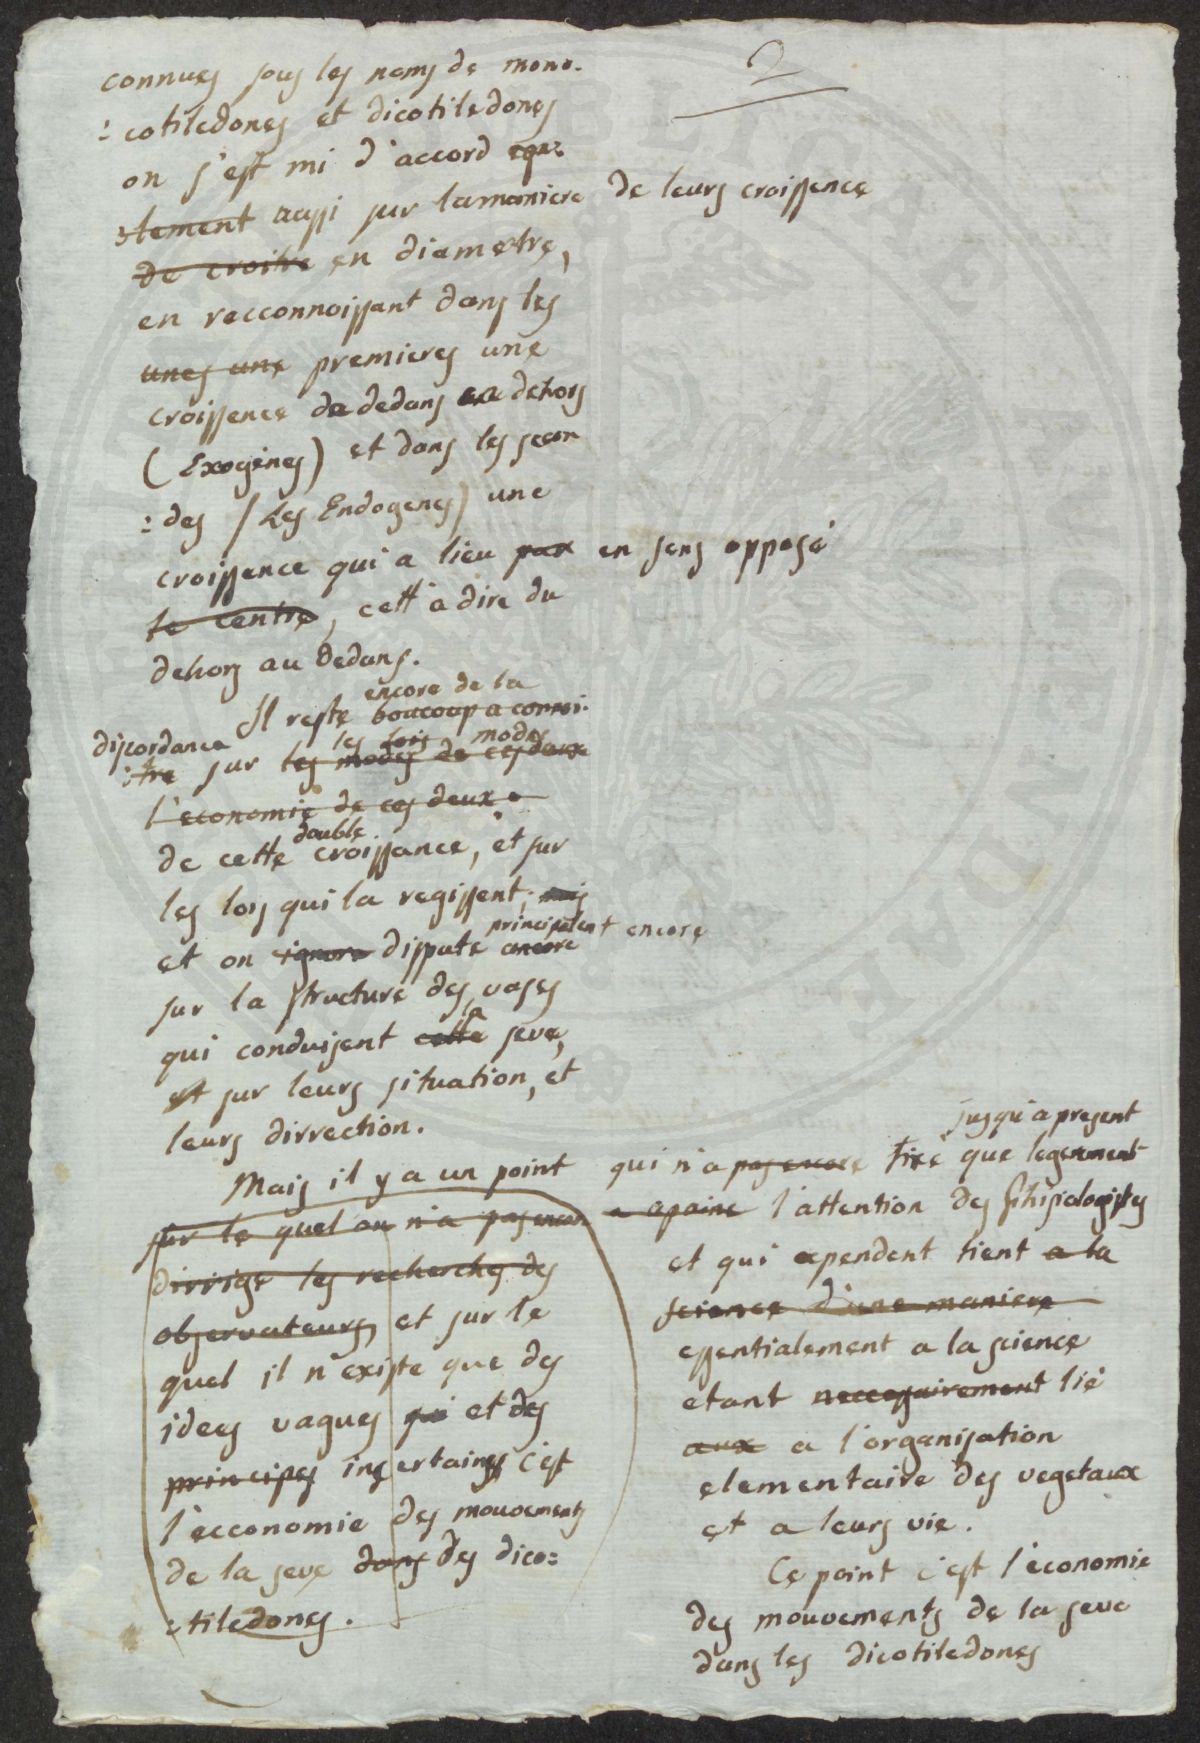 2
connues sous les noms de mono-
:cotiledones et dicotiledones
on s'est mi d'accord ega:
:lement aussi sur la maniere de leurs croissence
de croitre en diametre,
en recconnoissant dans les
unes une premieres une
croissence de dedans en dehors
(Exogènes) et dans les secon
:des (Les Endogenes) une
croissence qui a lieu par en sens opposé
le centre, cett a dire du
dehors au dedans.
encore de la
Il reste boucoup a connoi-
discordance les lois modes
:tre sur les modes de ces deux
l'economie de ces deux
double
de cette croissance, et sur
les lois qui la regissent, mais
principalent encore
et on ignore dispute encore
sur la structure des vases
la
qui conduisent cette seve,
et sur leurs situation, et
leurs dirrection.
jusqu'a present
Mais il y a un point qui n'a pas encore fixé que legerement
sur le quel on n'a pas encore a apaine l'attention des phisiologistes
dirrigé les recherches des
observateurs, et sur le
quel il n'existe que des
idees vagues qui et des
principes incertaines c'est
l'ecconomie des mouvements
de la seve dans des dico:
:tiledones.
et qui cependent tient a la
science d'une maniere
essentialement a la science
etant neccessairement lié
aux a l'organisation
elementaire des vegetaux
et a leurs vie.
Ce point c'est l'économie
des mouvements de la seve
dans les dicotiledones